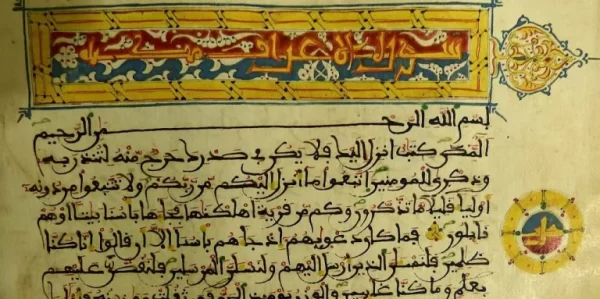 سورة الاعراف
بسم الله الرحمن الرحيم
المص كتب انزل اليك فلا يكن في صدرك حرج منه لتنذر به
وذكرى للمومنين اتبعوا ما انزل اليكم من ربكم ولا تتبعوا من دونه
اوليا قليلا ما تذكرون وكم من قرية اهلكنها فجاها باسنا بيتا او هم
قايلون فما كان دعويهم اذ جاهم باسنا الا ان قالوا انا كنا
ظلمين فلنسلن الذين ارسل اليهم ولنسلن المرسلين فلنقصن عليهم
بعلم وما كنا غايبين والوزن يوميذ الحق فمن ثقلت موزينه